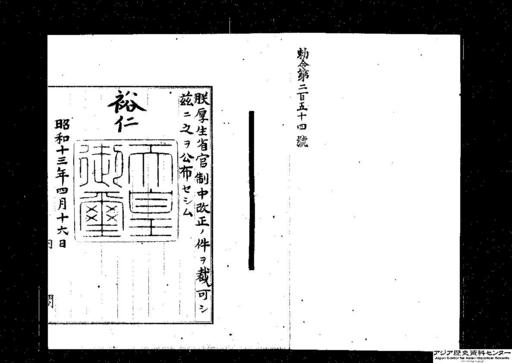 勅令第二百五十四號
朕厚生省官制中改正ノ件ヲ裁可シ
茲ニ之ヲ公布セシム
裕仁
天皇
御璽
昭和十三年四月十六日
内閣
アジア歴史資料センター
Japan Center for Asian Historical Records